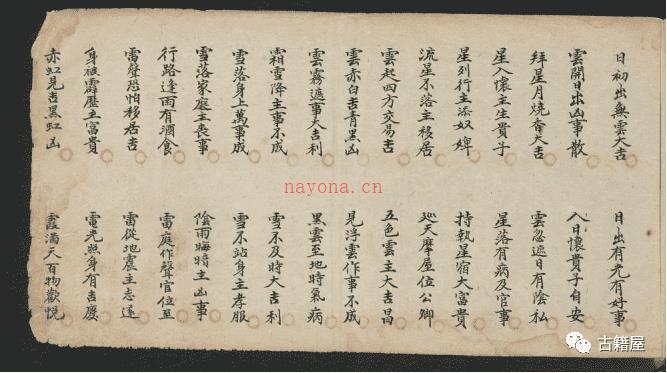 日初出無雲大吉 日出有光有好事
雲開日出凶事散 入日懷貴子自安
拜星月燒香大吉 雲忽遮日有陰私
星入懷主生貴子 星落有病及官事
星列行主添奴婢 持執星宿大富貴
流星不落主移居 廵天摩屋位公卿
雲起四方交易吉 五色雲主大吉昌
雲赤白吉青黑凶 見浮雲作事不成
雲霧遮事大吉利 黑雲至地時氣病
霜雪降主事不成 雪不及時大吉利
雪落身上萬事成 雪不站身主孝服
雪落家庭主喪事 陰雨晦暗主凶事
行路逢雨有酒食 雷庭作聲官位至
雷聲恐怕移居吉 雷從地震主志遂
身被霹靂主富貴 電光照身有吉慶
赤虹見吉黑虹凶 霞滿天百物歡悅
nayona.cn
古籍屋